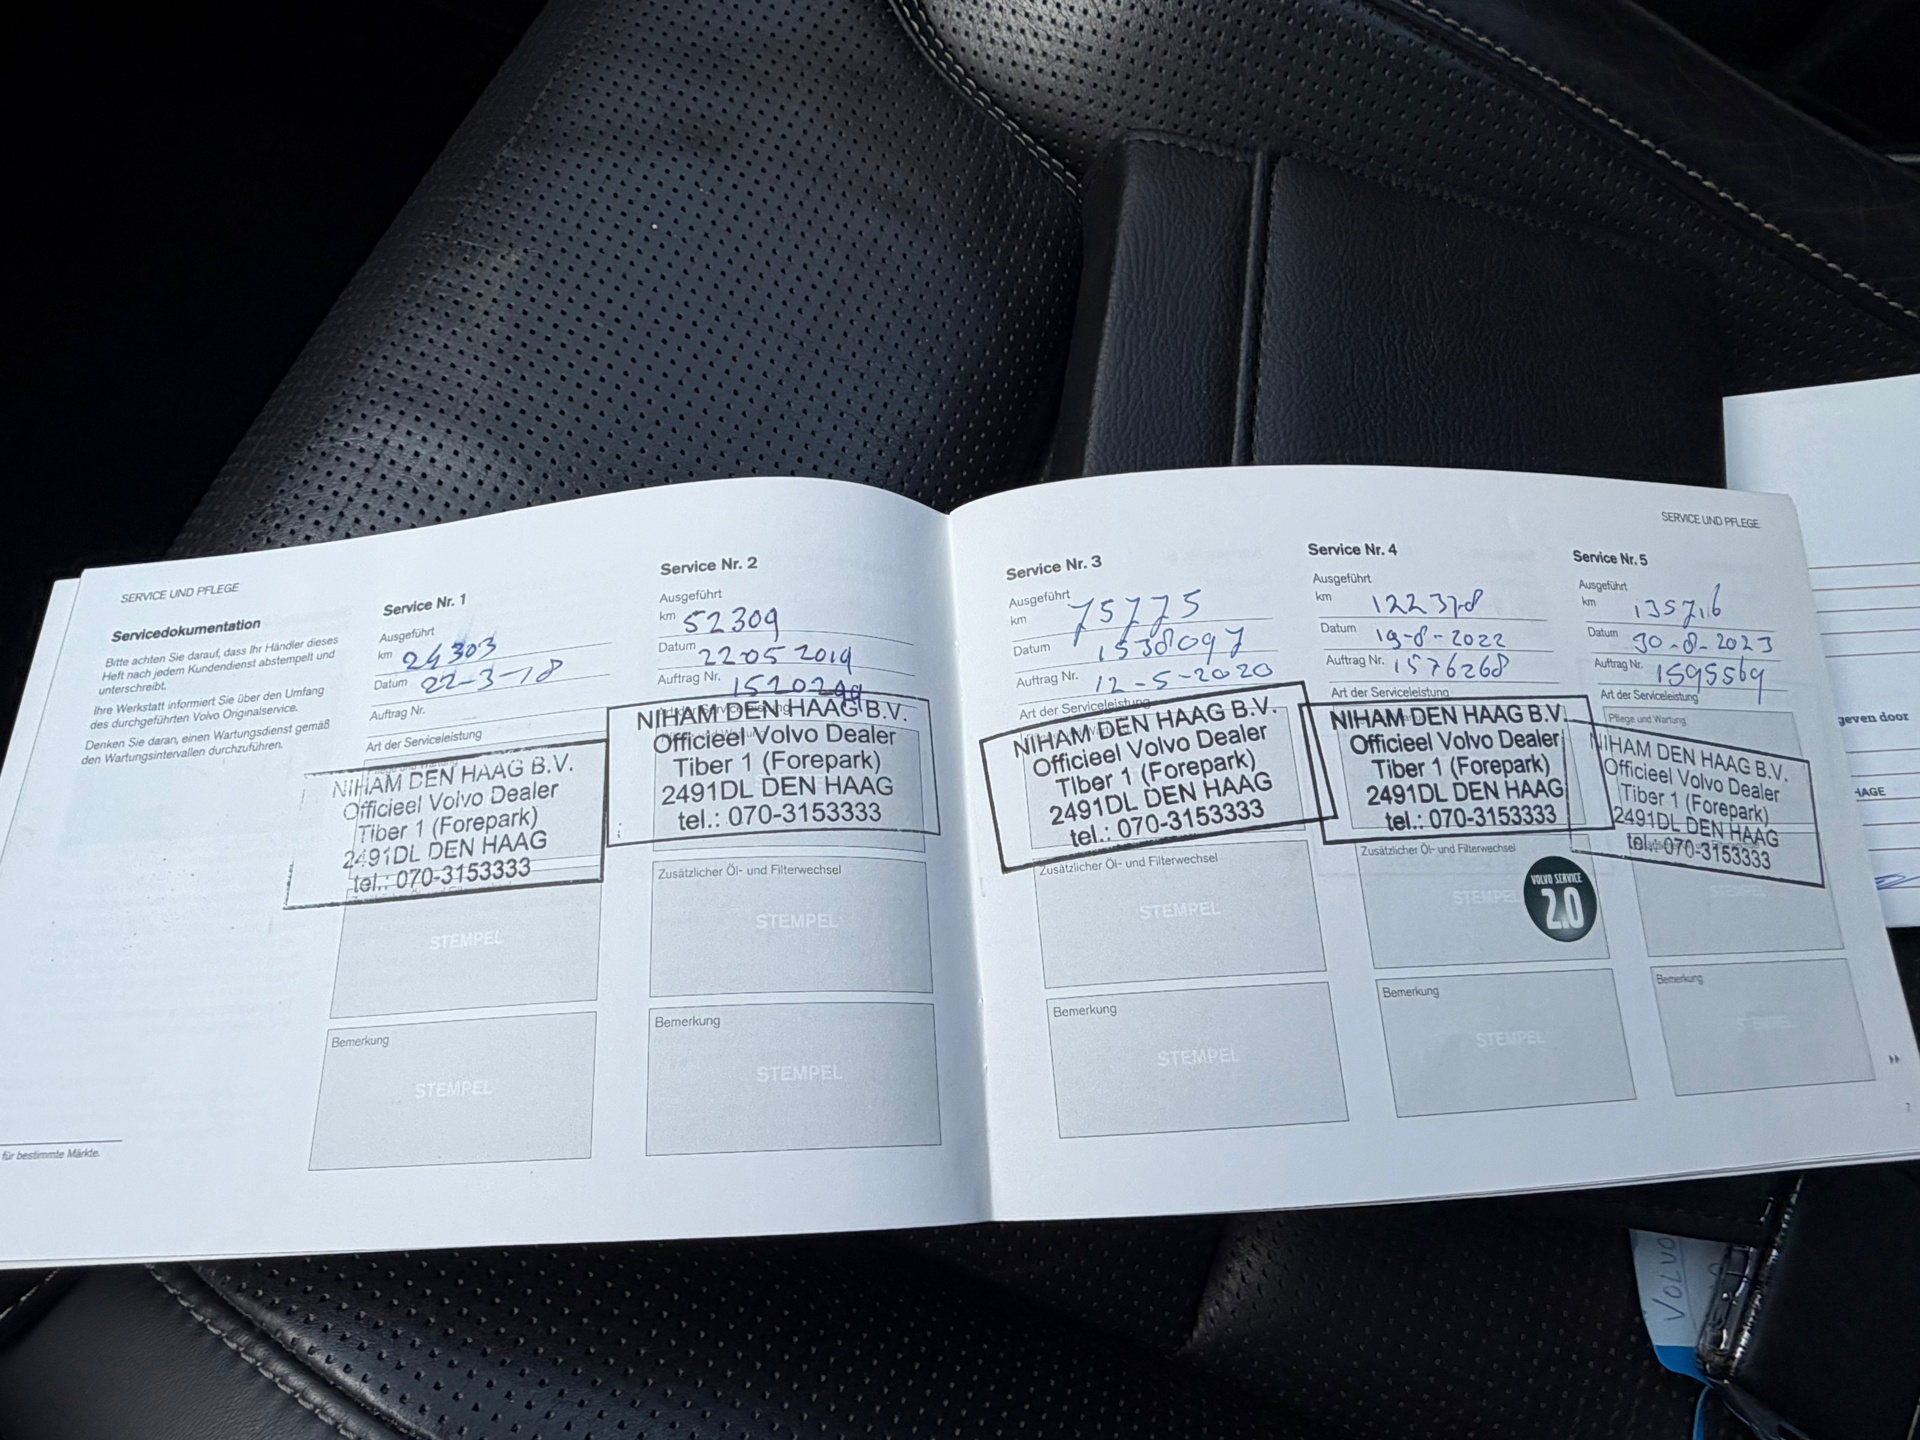 SERVICE UND PFLEGE
Servicedokumentation
Bitte achten Sie darauf, dass Ihr Händler dieses
Heft nach jedem Kundendienst abstempelt und
unterschreibt.
Ihre Werkstatt informiert Sie über den Umfang
des durchgeführten Volvo Originalservice.
Denken Sie daran, einen Wartungsdienst gemäß
den Wartungsintervallen durchzuführen.
für bestimmte Märkte.
Service Nr. 1
Ausgeführt
km 24303
Datum 22-3-18
Auftrag Nr.
Art der Serviceleistung
NIHAM DEN HAAG B.V.
Officieel Volvo Dealer
Tiber 1 (Forepark)
2491DL DEN HAAG
tel.: 070-3153333
STEMPEL
Bemerkung
STEMPEL
Service Nr. 2
Ausgeführt
km 52309
Datum 22-05 2019
Auftrag Nr. 1520299
NIHAM DEN HAAG B.V.
Officieel Volvo Dealer
Tiber 1 (Forepark)
2491DL DEN HAAG
tel.: 070-3153333
Zusätzlicher Öl- und Filterwechsel
STEMPEL
Bemerkung
STEMPEL
SERVICE UND PFLEGE
Service Nr. 3
Ausgeführt
km 75775
Datum 1538097
Auftrag Nr. 12-5-2020
Art der Serviceleistung
NIHAM DEN HAAG B.V.
Officieel Volvo Dealer
Tiber 1 (Forepark)
2491DL DEN HAAG
tel.: 070-3153333
Zusätzlicher Öl- und Filterwechsel
STEMPEL
Bemerkung
STEMPEL
Service Nr. 4
Ausgeführt
km 122378
Datum 19-8-2022
Auftrag Nr. 1576268
Art der Serviceleistung
NIHAM DEN HAAG B.V.
Officieel Volvo Dealer
Tiber 1 (Forepark)
2491DL DEN HAAG
tel.: 070-3153333
Zusätzlicher Öl- und Filterwechsel
STEMPEL
VOLVO SERVICE
2.0
Bemerkung
STEMPEL
Service Nr. 5
Ausgeführt
km 135716
Datum 30-8-2023
Auftrag Nr. 1595569
Art der Serviceleistung
Pflege und Wartung
NIHAM DEN HAAG B.V.
Officieel Volvo Dealer
Tiber 1 (Forepark)
2491DL DEN HAAG
tel.: 070-3153333
STEMPEL
Bemerkung
STEMPEL
7
geven door
HAGE
VOLVO